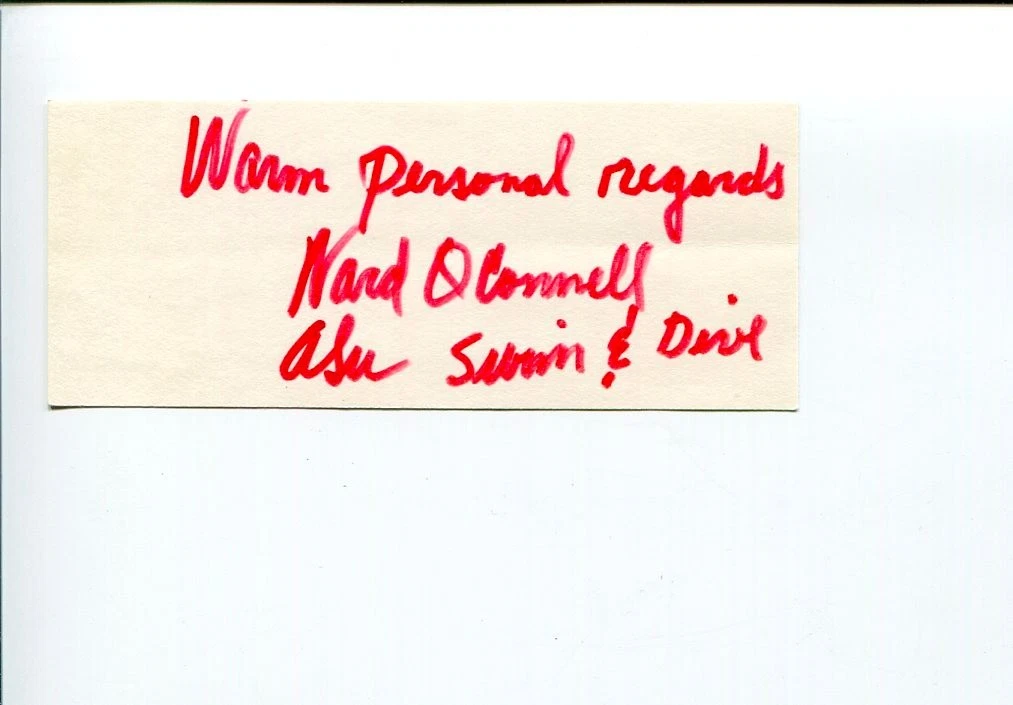 Warm personal regards
Ward O'Connell
ASU Swim & Dive